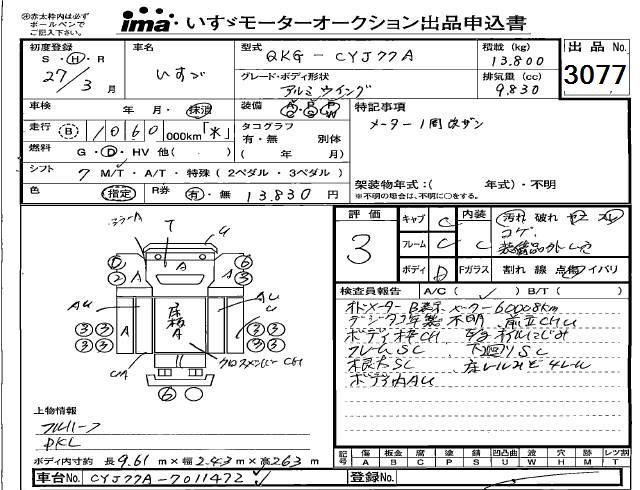 ※赤太枠内は必ず
ボールペンで
ご記入下さい。
ima いすゞモーターオークション出品申込書
初度登録 車名 型式 積載(kg) 出品No.
S・H・R いすゞ QKG-CYJ77A 13.800 3077
27/3月 グレード・ボディ形状 排気量(cc)
アルミウイング 9.830
車検 年 月・抹消 装備 A/C P/S P/W 特記事項
走行 B 1060 000km「米」 タコグラフ メーター1周改ザン
有・無 別体
燃料 G・D・HV 他( ) ( 年 月)
シフト 7 M/T・A/T・特殊(2ペダル・3ペダル) 架装物年式:( 年式)・不明
※不明の場合は、不明に○をする。
色 指定 R券 有・無 13.830 円
評価 3
キャブ C 内装 C 汚れ 破れ
コゲ
フレーム C
ボディ D Fガラス 割れ 線 点傷 イバリ
検査員報告 A/C( ✓ ) B/T( )
オドメーターB表示 メーター60008km
デジタコ年製不明 前立CHU
フレームSC 下廻りSC
根太SC
ボディ内AU
T
U
A
床板A
AU
AU
U
クロスメンバーCH
CH
上物情報
フルハーフ
PKL
ボディ内寸約 長9.61m×幅2.43m×高2.63m
記号 傷 A 板金 B 腐 C 塗 P 錆 S 凹凸曲 U 波 W 穴 H 跡 M レツ割 T
車台No. CYJ77A-7011472 登録No.